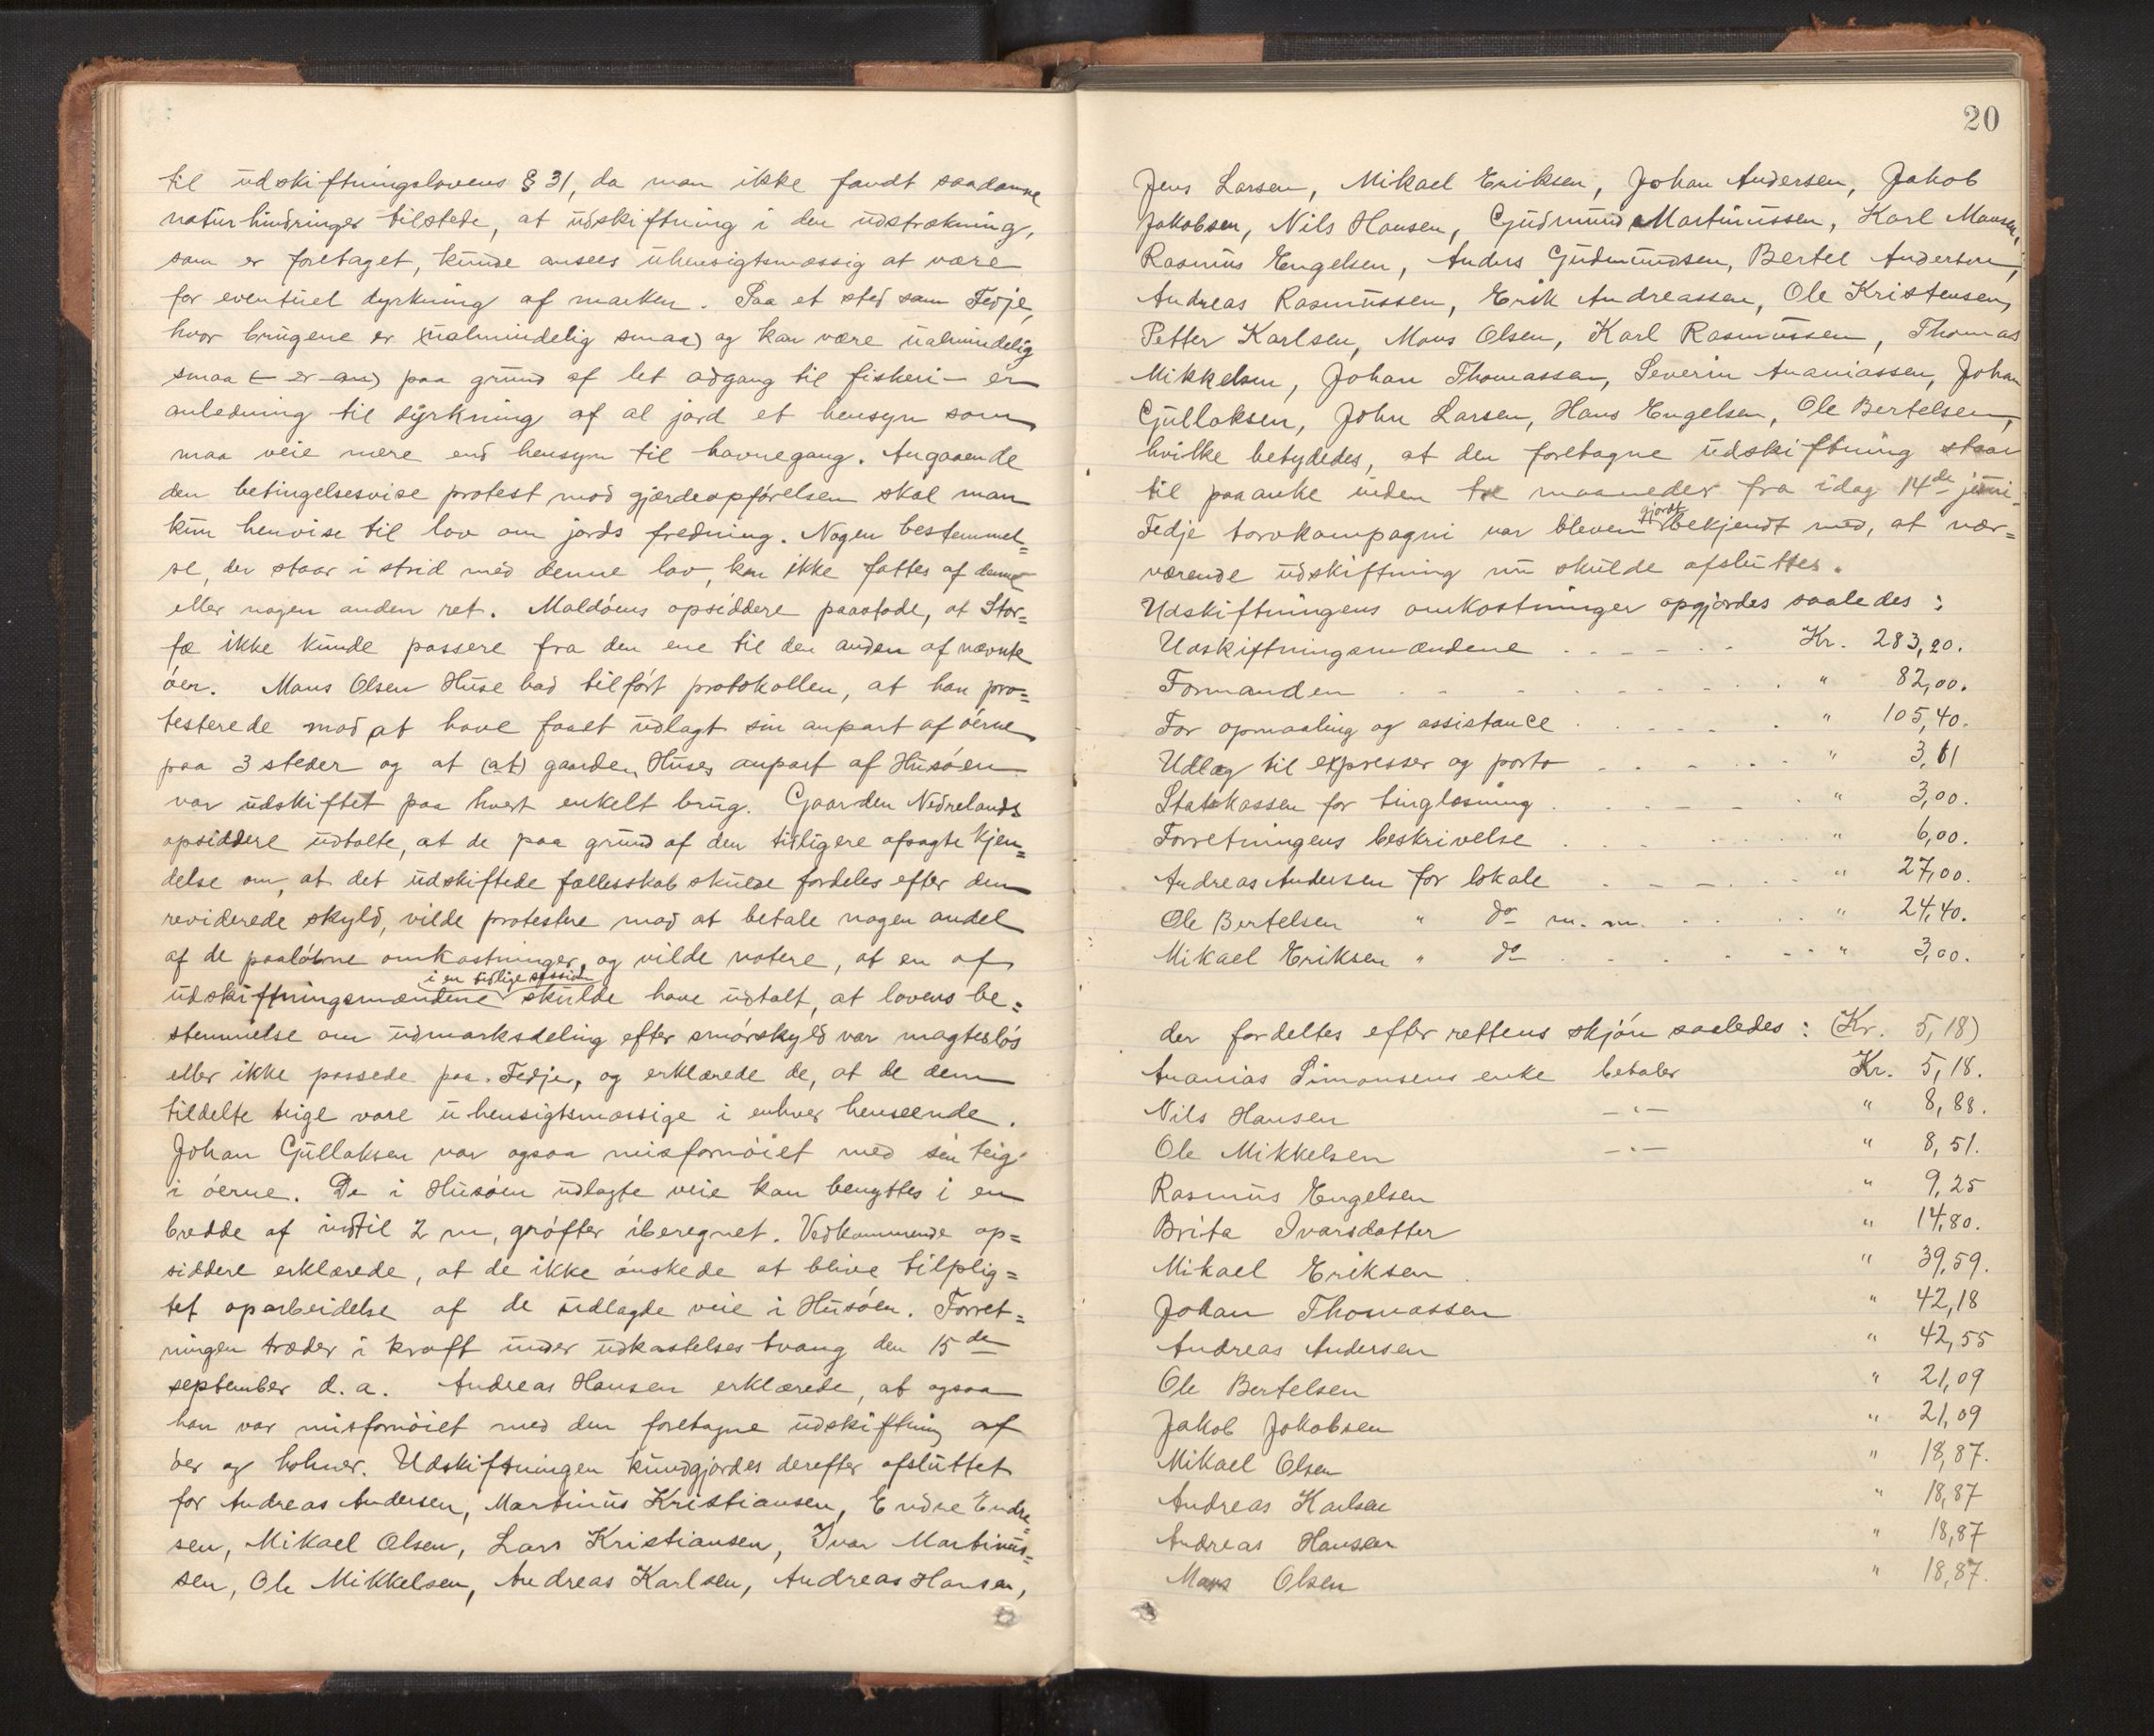 til udskiftningslovens § 31, da man ikke fandt saadanne
naturhindringer tilstede, at udskiftning i den udstrækning,
som er foretaget, kunde ansees uhensigtsmæssig at være
for eventuel dyrkning af marken. Paa et sted som Fedje,
hvor brugene er (ualmindelig smaa) og kan være ualmindelig
smaa (- er an) paa grund af let adgang til fiskeri - er
anledning til dyrkning af al jord et hensyn som
maa veie mere end hensyn til havnegang. Angaaende
den betingelsesvise protest mod gjærdeopførelsen skal man
kun henvise til lov om jords fredning. Nogen bestemmel=
se, der staar i strid med denne lov, kan ikke fattes af denne
eller nogen anden ret. Moldøens opsiddere paastode, at Stor=
fæ ikke kunde passere fra den ene til den anden af nævnte
øer. Mons Olsen Huse bad tilført protokollen, at han pro=
testerede mod at have faaet udlagt sin anpart af øerne
paa 3 steder og at (at) gaarden Huses anpart af Husøen
var udskiftet paa hvert enkelt brug. Gaarden Nedrelands
opsiddere udtalte, at de paa grund af den tidligere afsagte kjen=
delse om, at det udskiftede fællesskab skulde fordeles efter den
reviderede skyld, vilde protestere mod at betale nogen andel
af de paaløbne omkostninger, og vilde notere, at en af
i en tidlige session
udskiftningsmændene skulde have udtalt, at lovens be=
stemmelse om udmarksdeling efter smørskyld var magtesløs
eller ikke passede paa Fedje, og erklærede de, at de dem
tildelte teige vare uhensigtsmæssige i enhver henseende.
Johan Gullaksen var ogsaa misfornøiet med sin teig
i øerne. De i Husøen udlagte veie kan benyttes i en
bredde af indtil 2 m, grøfter iberegnet. Vedkommende op=
siddere erklærede, at de ikke ønskede at blive tilplig=
tet oparbeidelse af de udlagde veie i Husøen. Forret=
ningen træder i kraft under udkastelses tvang den 15de
september d.a. Andreas Hansen erklærede, at ogsaa
han var misfornøiet med den foretagne udskiftning af
øer og holmer. Udskiftningen kundgjordes derefter afsluttet
for Andreas Andersen, Martinus Kristiansen, Endre Endre=
sen, Mikael Olsen, Lars Kristiansen, Ivar Martinus=
sen, Ole Mikkelsen, Andreas Karlsen, Andreas Hansen,
20
Jens Larsen, Mikael Eriksen, Johan Andersen, Jakob
Jakobsen, Nils Hansen, Gudmund Martinussen, Karl Monsen,
Rasmus Engelsen, Anders Gudmundsen, Bertel Andersen,
Andreas Rasmussen, Erik Andreassen, Ole Kristensen,
Petter Karlsen, Mons Olsen, Karl Rasmussen, Thomas
Mikkelsen, Johan Thomassen, Severin Ananiassen, Johan
Gullaksen, John Larsen, Hans Engelsen, Ole Bertelsen,
hvilke betydedes, at den foretagne udskiftning staar
til paaanke inden tre maaneder fra idag 14de juni.
gjordt
Fedje torvkompagni var bleven bekjendt med, at nær=
værende udskiftning nu skulde afsluttes.
Udskiftningens omkostninger opgjordes saaledes:
Udskiftningsmændene . . . . . . Kr. 283,20.
Formanden . . . . . . . . . " 82,00.
For opmaaling og assistance . . . . . " 105,40.
Udlæg til expresser og porto . . . . . " 3,61
Statskassen for tinglæsning . . . . . . " 3,00.
Forretningens beskrivelse . . . . . . " 6,00.
Andreas Andersen for lokale . . . . . " 27,00.
Ole Bertelsen " do m. m. . . . . " 24,40.
Mikael Eriksen " do . . . . . . " 3,00.
der fordeltes efter rettens skjøn saaledes: (Kr. 5,18)
Ananias Simonsens enke betaler Kr. 5,18.
Nils Hansen -"- " 8,88.
Ole Mikkelsen -"- " 8,51.
Rasmus Engelsen " 9,25
Brita Ivarsdatter " 14,80.
Mikael Eriksen " 39,59.
Johan Thomassen " 42,18
Andreas Andersen " 42,55
Ole Bertelsen " 21,09
Jakob Jakobsen " 21,09
Mikael Olsen " 18,87.
Andreas Karlsen " 18,87
Andreas Hansen " 18,87
Mons Olsen " 18,87.